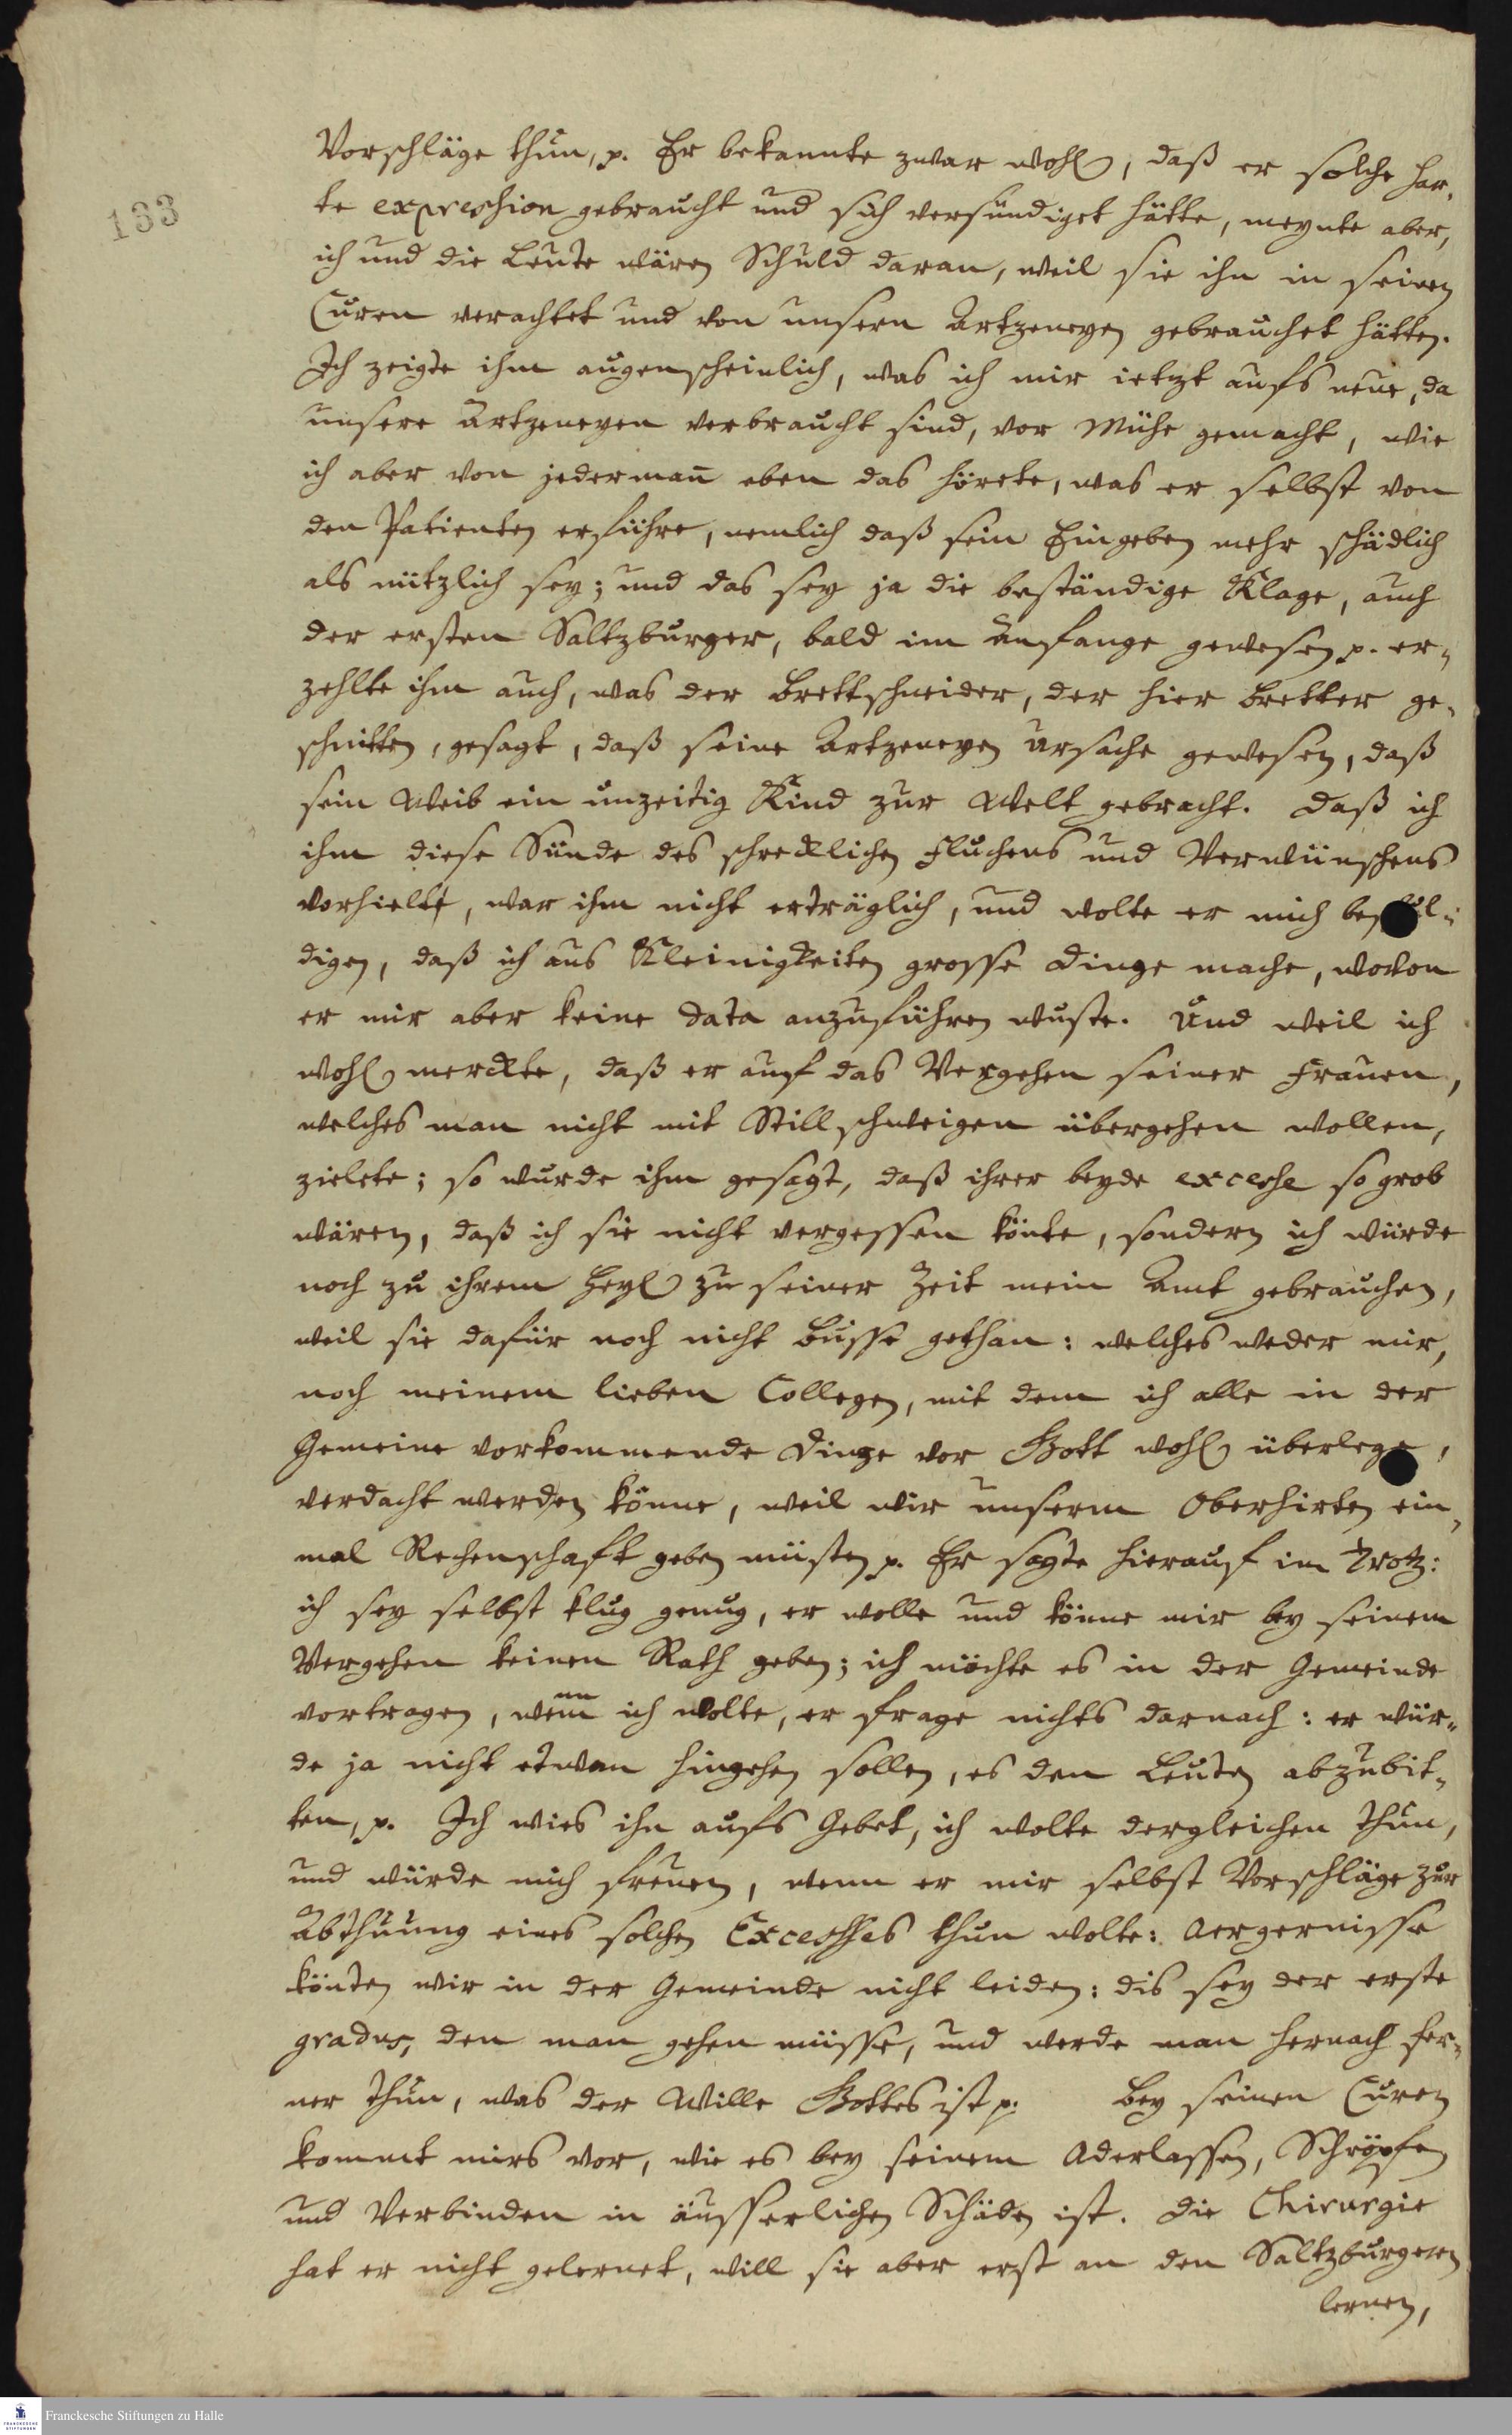 133
Vorschläge thun, p. Er bekannte zwar wohl, daß er solche har-
te expression gebraucht und sich versündiget hätte, meynte aber,
ich und die Leute wären Schuld daran, weil sie ihn in seinen
Curen verachtet und von unsern Artzeneyen gebrauchet hätten.
Ich zeigte ihm augenscheinlich, was ich mir ietzt aufs neue, da
unsere Artzeneyen verbraucht sind, vor Mühe gemacht, wie
ich aber von jederman̄ eben das hörete, was er selbst von
den Patienten erführe, nemlich daß sein Eingeben mehr schädlich
als nützlich sey; und das sey ja die beständige Klage, auch
der ersten Saltzburger, bald im Anfange gewesen p. er-
zehlte ihm auch, was der Brettschneider, der hier Bretter ge-
schnitten, gesagt, daß seine Artzeneyen Ursache gewesen, daß
sein Weib ein unzeitig Kind zur Welt gebracht. Daß ich
ihm diese Sünde des schrecklichen Fluchens und Verwünschens
vorhielte, war ihm nicht erträglich, und wolte er mich beschul-
digen, daß ich aus Kleinigkeiten grosse Dinge mache, wovon
er mir aber keine Data anzuführen wuste. Und weil ich
wohl merckte, daß er auf das Vergehen seiner Frauen,
welches man nicht mit Stillschweigen übergehen wollen,
zielete; so wurde ihm gesagt, daß ihrer beyde excesse so grob
wären, daß ich sie nicht vergessen könte, sondern ich würde
noch zu ihrem Heyl zu seiner Zeit mein Amt gebrauchen,
weil sie dafür noch nicht Busse gethan: welches weder mir,
noch meinem lieben Collegen, mit dem ich alle in der
Gemeine vorkommende Dinge vor Gott wohl überlege,
verdacht werden könne, weil wir unserm Oberhirten ein-
mal Rechenschaft geben müsten p. Er sagte hierauf im Trotz:
ich sey selbst klug genug, er wolle und könne mir bey seinem
Vergehen keinen Rath geben; ich möchte es in der Gemeinde
vortragen, wenn ich wolte, er frage nichts darnach: er wür-
de ja nicht etwan hingehen sollen, es den Leuten abzubit-
ten, p. Ich wies ihn aufs Gebet, ich wolte dergleichen thun,
und würde mich freuen, wenn er mir selbst Vorschläge zur
Abthuung eines solchen Excesses thun wolte: Aergernisse
könten wir in der Gemeinde nicht leiden: dis sey der erste
gradus, den man gehen müsse, und werde man hernach fer-
ner thun, was der Wille Gottes ist p. Bey seinen Curen
kommt mirs vor, wie es bey seinem Aderlassen, Schröpfen
und Verbinden in äusserlichen Schäden ist. Die Chirurgie
hat er nicht gelernet, will sie aber erst an den Saltzburgern
lernen,
Franckesche Stiftungen zu Halle